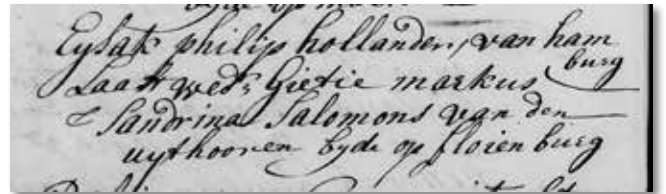 byde op
Eysak philip hollander, van ham
burg
Laast wedr. Gietie markus
& Sandrina Salomons van den
uythooren byde op floienburg